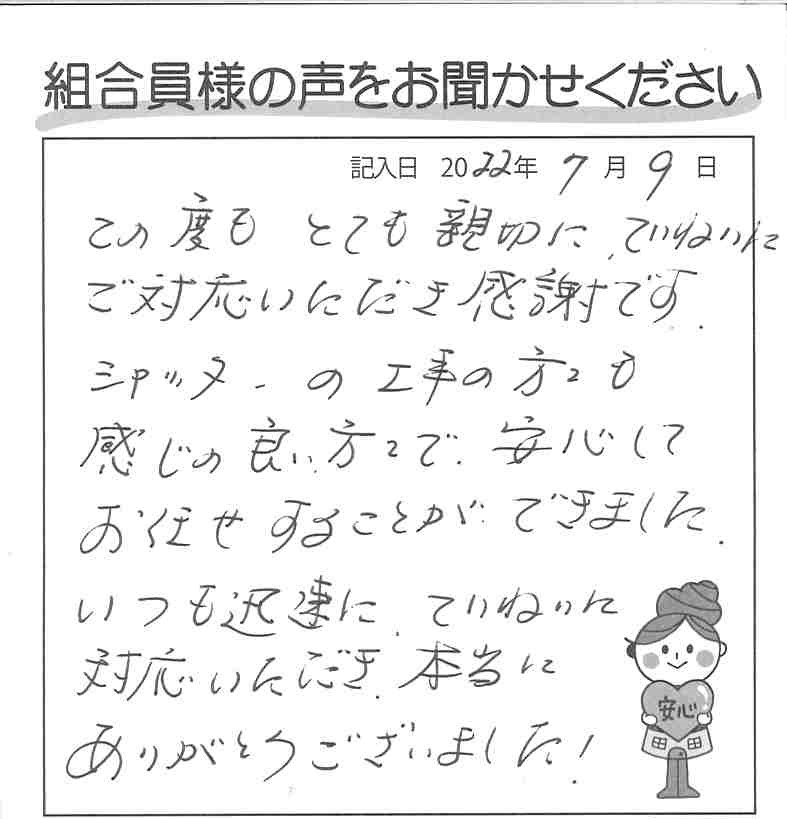 組合員様の声をお聞かせください
記入日 2022年 7月 9日
この度も とても親切に、ていねいに
ご対応いただき感謝です.
シャッターの工事の方々も
感じの良い方々で、安心して
お任せすることができました.
いつも迅速に、ていねいに
対応いただき、本当に
ありがとうございました!
安心